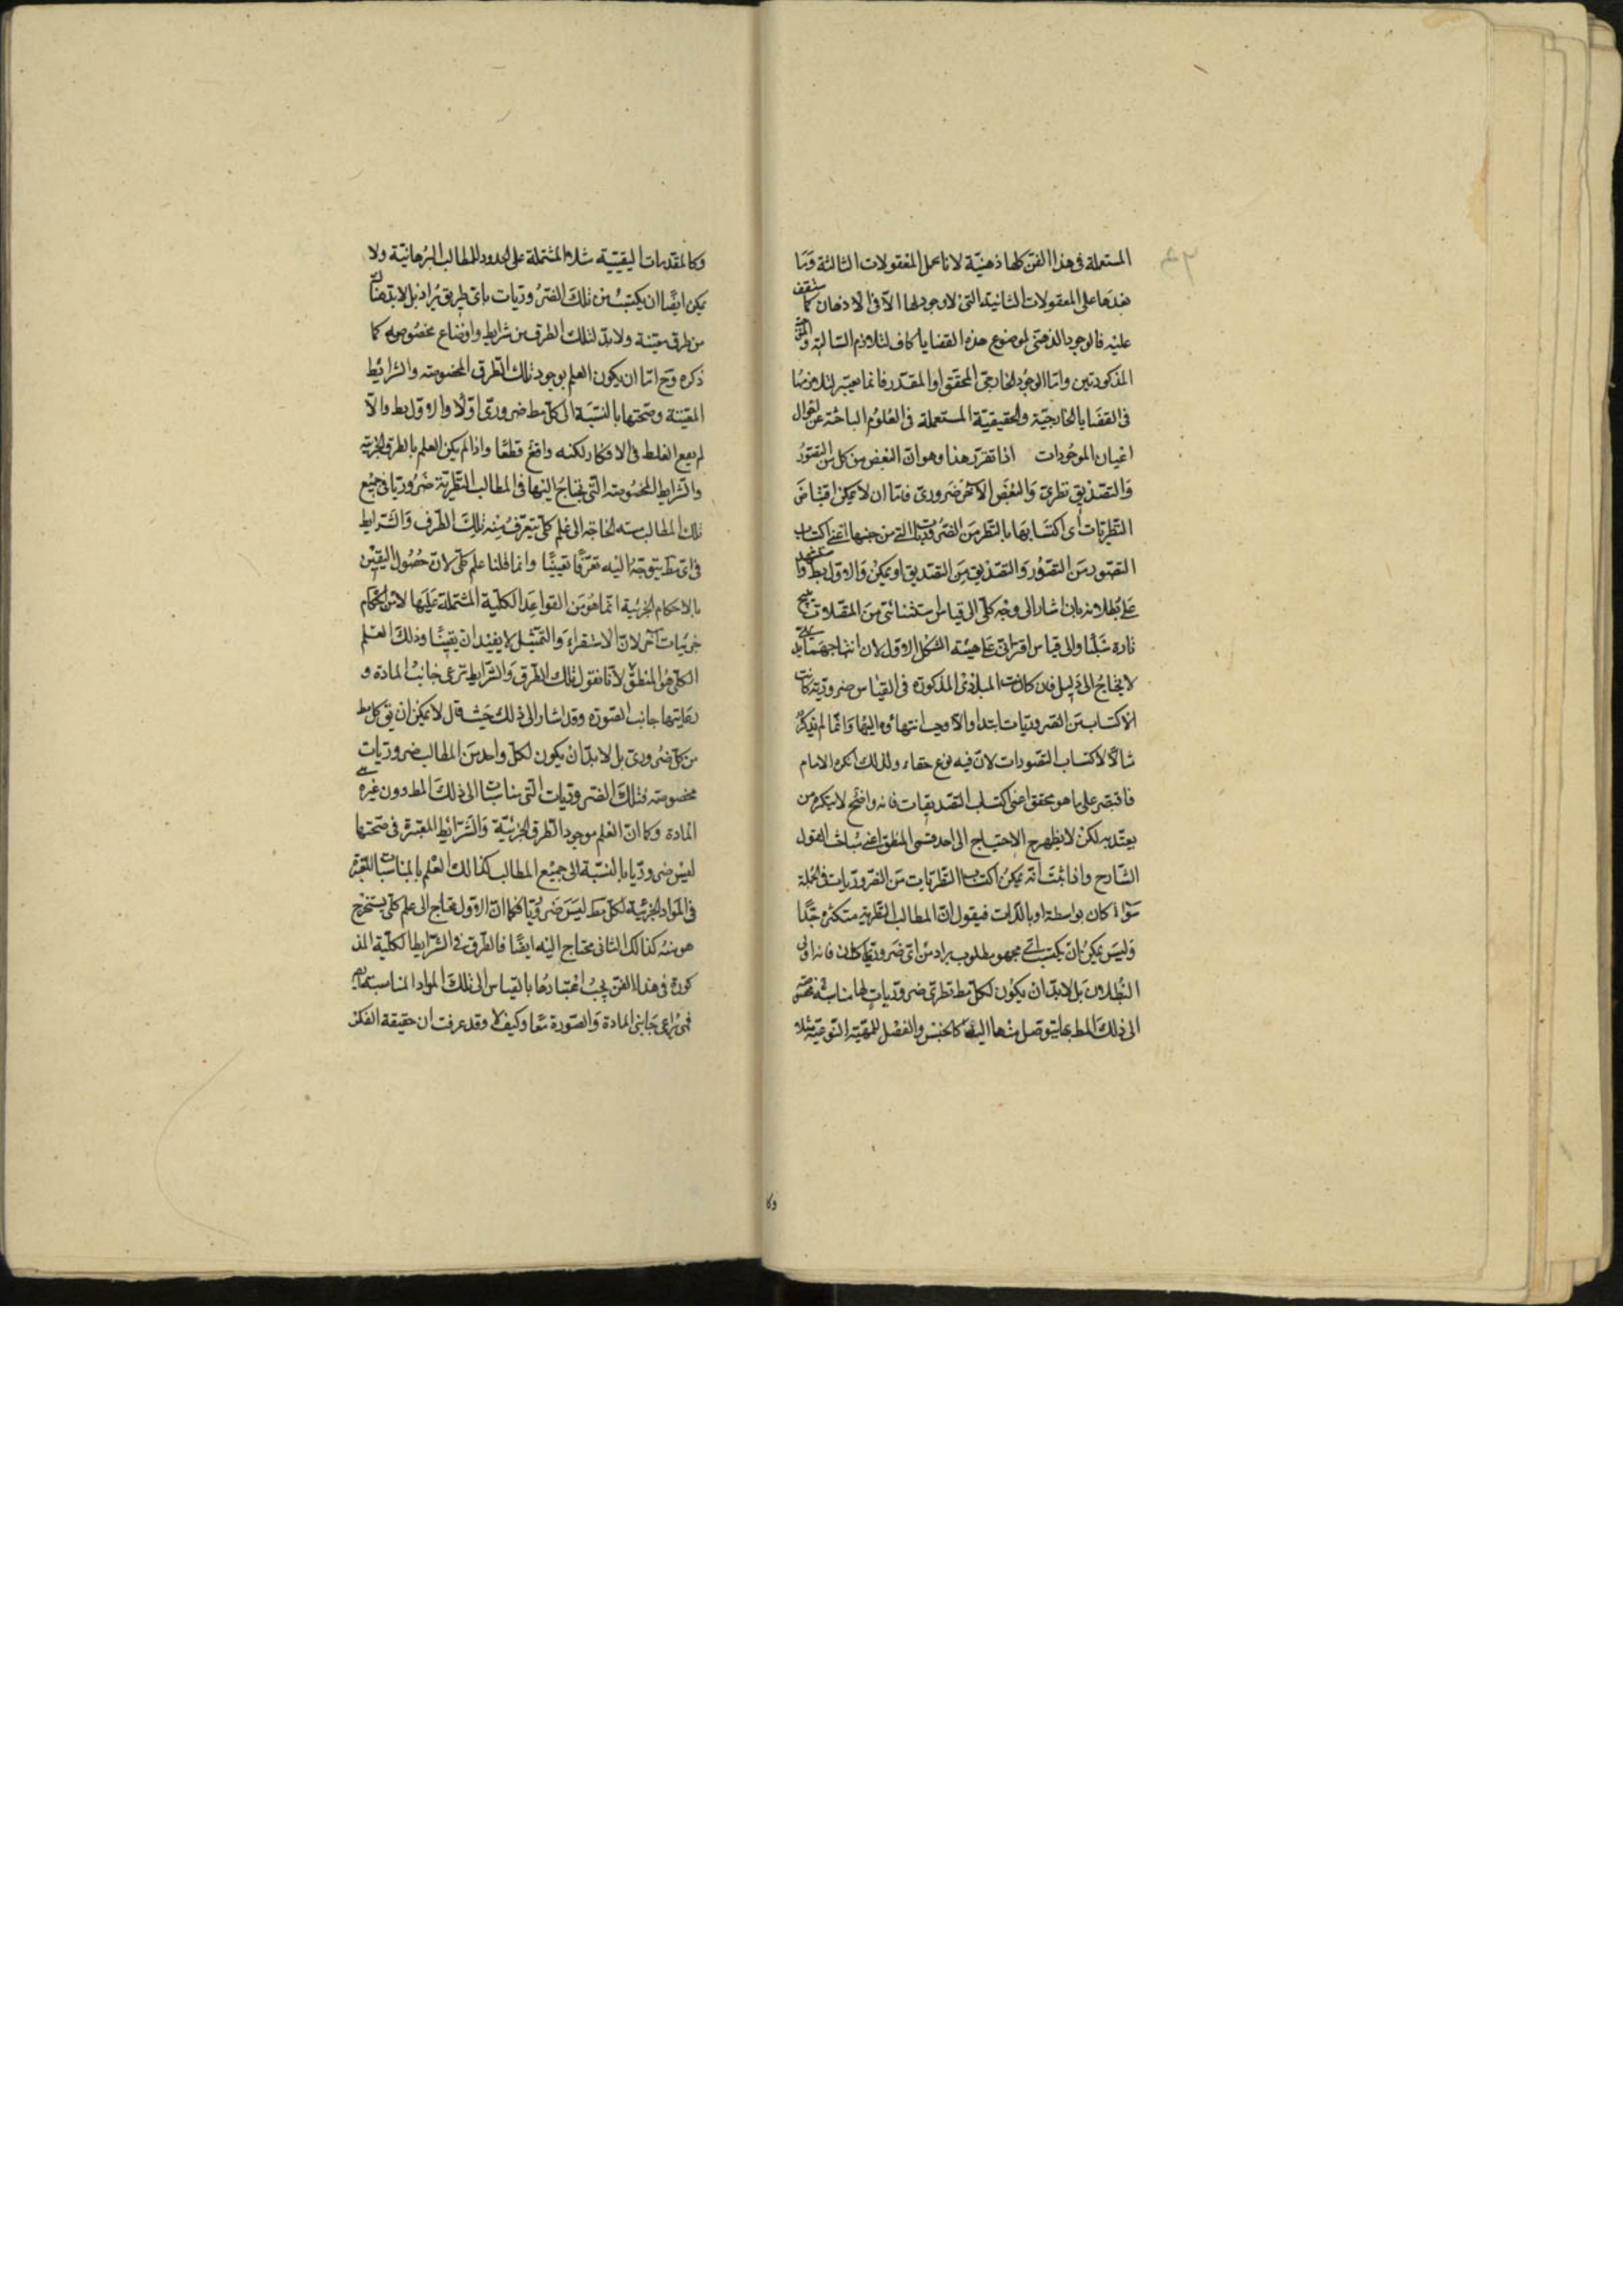 المستعملة فى هذا الفن كلها ذهنية لانا نحمل المعقولات الثالثة وما
بعدها على المعقولات الثانية التى لا وجود لها الا فى الاذهان كما ستقف
عليه فالوجود الذهنى لموضوع هذه القضايا كاف لتلازم السالبة
المذكورتين واما الوجود الخارجى المحقق او المقدر فانما يعتبر لتلازمها
فى القضايا الخارجية والحقيقية المستعملة فى العلوم الباحثة عن احوال
اعيان الموجودات اذا تقرر هذا وهو ان البعض من كل من التصور
والتصديق نظرى والبعض الآخر ضرورى فاما ان لا يمكن اقتناص
النظريات اى اكتسابها بالنظر من الضروريات التى من جنسها اعنى اكتساب
التصور من التصور والتصديق من التصديق او يمكن والاول بط
على بطلانه بان اشار الى وجه كلى الى قياس استثنائى من المتصلات
تارة والى قياس اقترانى على هيئة الشكل الاول لان انتاجهما
لا يحتاج الى دليل فان كانت المبادى المذكورة فى القياس ضرورية كانت
الاكتساب من الضروريات ابتداء والا وجب انتهاؤه اليها وانما لم يذكر
مثالا لاكتساب التصورات لان فيه نوع خفاء ولذلك انكره الامام
فاقتصر على ما هو محقق اعنى اكتساب التصديقات فانه واضح لا ينكره من
يعتد به لكن لا يظهر ح الاحتياج الى احد قسمى المنطق اعنى مباحث القول
الشارح واذا ثبت انه يمكن اكتساب النظريات من الضروريات فى الجملة
سواء كان بواسطة او بالذات فيقول ان المطالب النظرية متكثرة جدا
وليس يمكن ان يكتسب اى مجهول مطلوب يراد من اى ضرورى كان فانه
البطلان بل لا بد ان يكون لكل مط نظرى ضروريات لها مناسبة مخصوصة
الى ذلك المط بها يتوصل منها اليه كالجنس والفصل للمهية النوعية مثلا
وكا
وكالمقدمات اليقينية مثلا المشتملة على الحدود للمطالب البرهانية ولا
يمكن ايضا ان يكتسب من تلك الضروريات باى طريق يراد بل لا بد هناك
من طرق معينة ولا بد لتلك الطرق من شرايط واوضاع مخصوصة كما
ذكره وح اما ان يكون العلم بوجود تلك الطرق المخصوصة والشرائط
المعينة وصحتها بالنسبة الى كل مط ضرورى اولا والاول بط والا
لم يقع الغلط فى الافكار لكنه واقع قطعا واذا لم يكن العلم بالطرق الجزئية
والشرايط المخصوصة التى يحتاج اليها فى المطالب النظرية ضروريا فى جميع
تلك المطالب مست الحاجة الى علم كلى يتعرف منه تلك الطرق والشرايط
فى اى مط يتوجه اليه تعرفا يقينيا وانما قلنا علم كلى لان حصول اليقين
بالاحكام الجزئية انما هو من القواعد الكلية المشتملة عليها لا من احكام
جزئيات آخر لان الاستقراء والتمثيل لا يفيدان يقينا وذلك العلم
الكلى هو المنطق لانا نقول تلك الطرق والشرايط ترعى جانب المادة و
رعايتها جانب الصورة وقد اشار الى ذلك حيث قال لا يمكن ان يق كل مط
من كل ضرورى بل لا بد ان يكون لكل واحد من المطالب ضروريات
مخصوصة فتلك الضروريات التى مناسبات الى ذلك المط دون غيره
المادة وكما ان العلم بوجود الطرق الجزئية والشرائط المعتبرة فى صحتها
ليس ضروريا بالنسبة الى جميع المطالب كذالك العلم بالمناسبات المعتبرة
فى المواد الجزئية لكل مط ليس ضروريا فكما ان الاول محتاج الى علم كلى يستخرج
هو منه كذالك الثانى محتاج اليه ايضا فالطرق والشرايط الكلية المذ
كورة فى هذا الفن يجب اعتبارها بالقياس الى تلك المواد المناسبة
فهى تراعى جانبى المادة والصورة معا وكيف لا وقد عرفت ان حقيقة الفكر